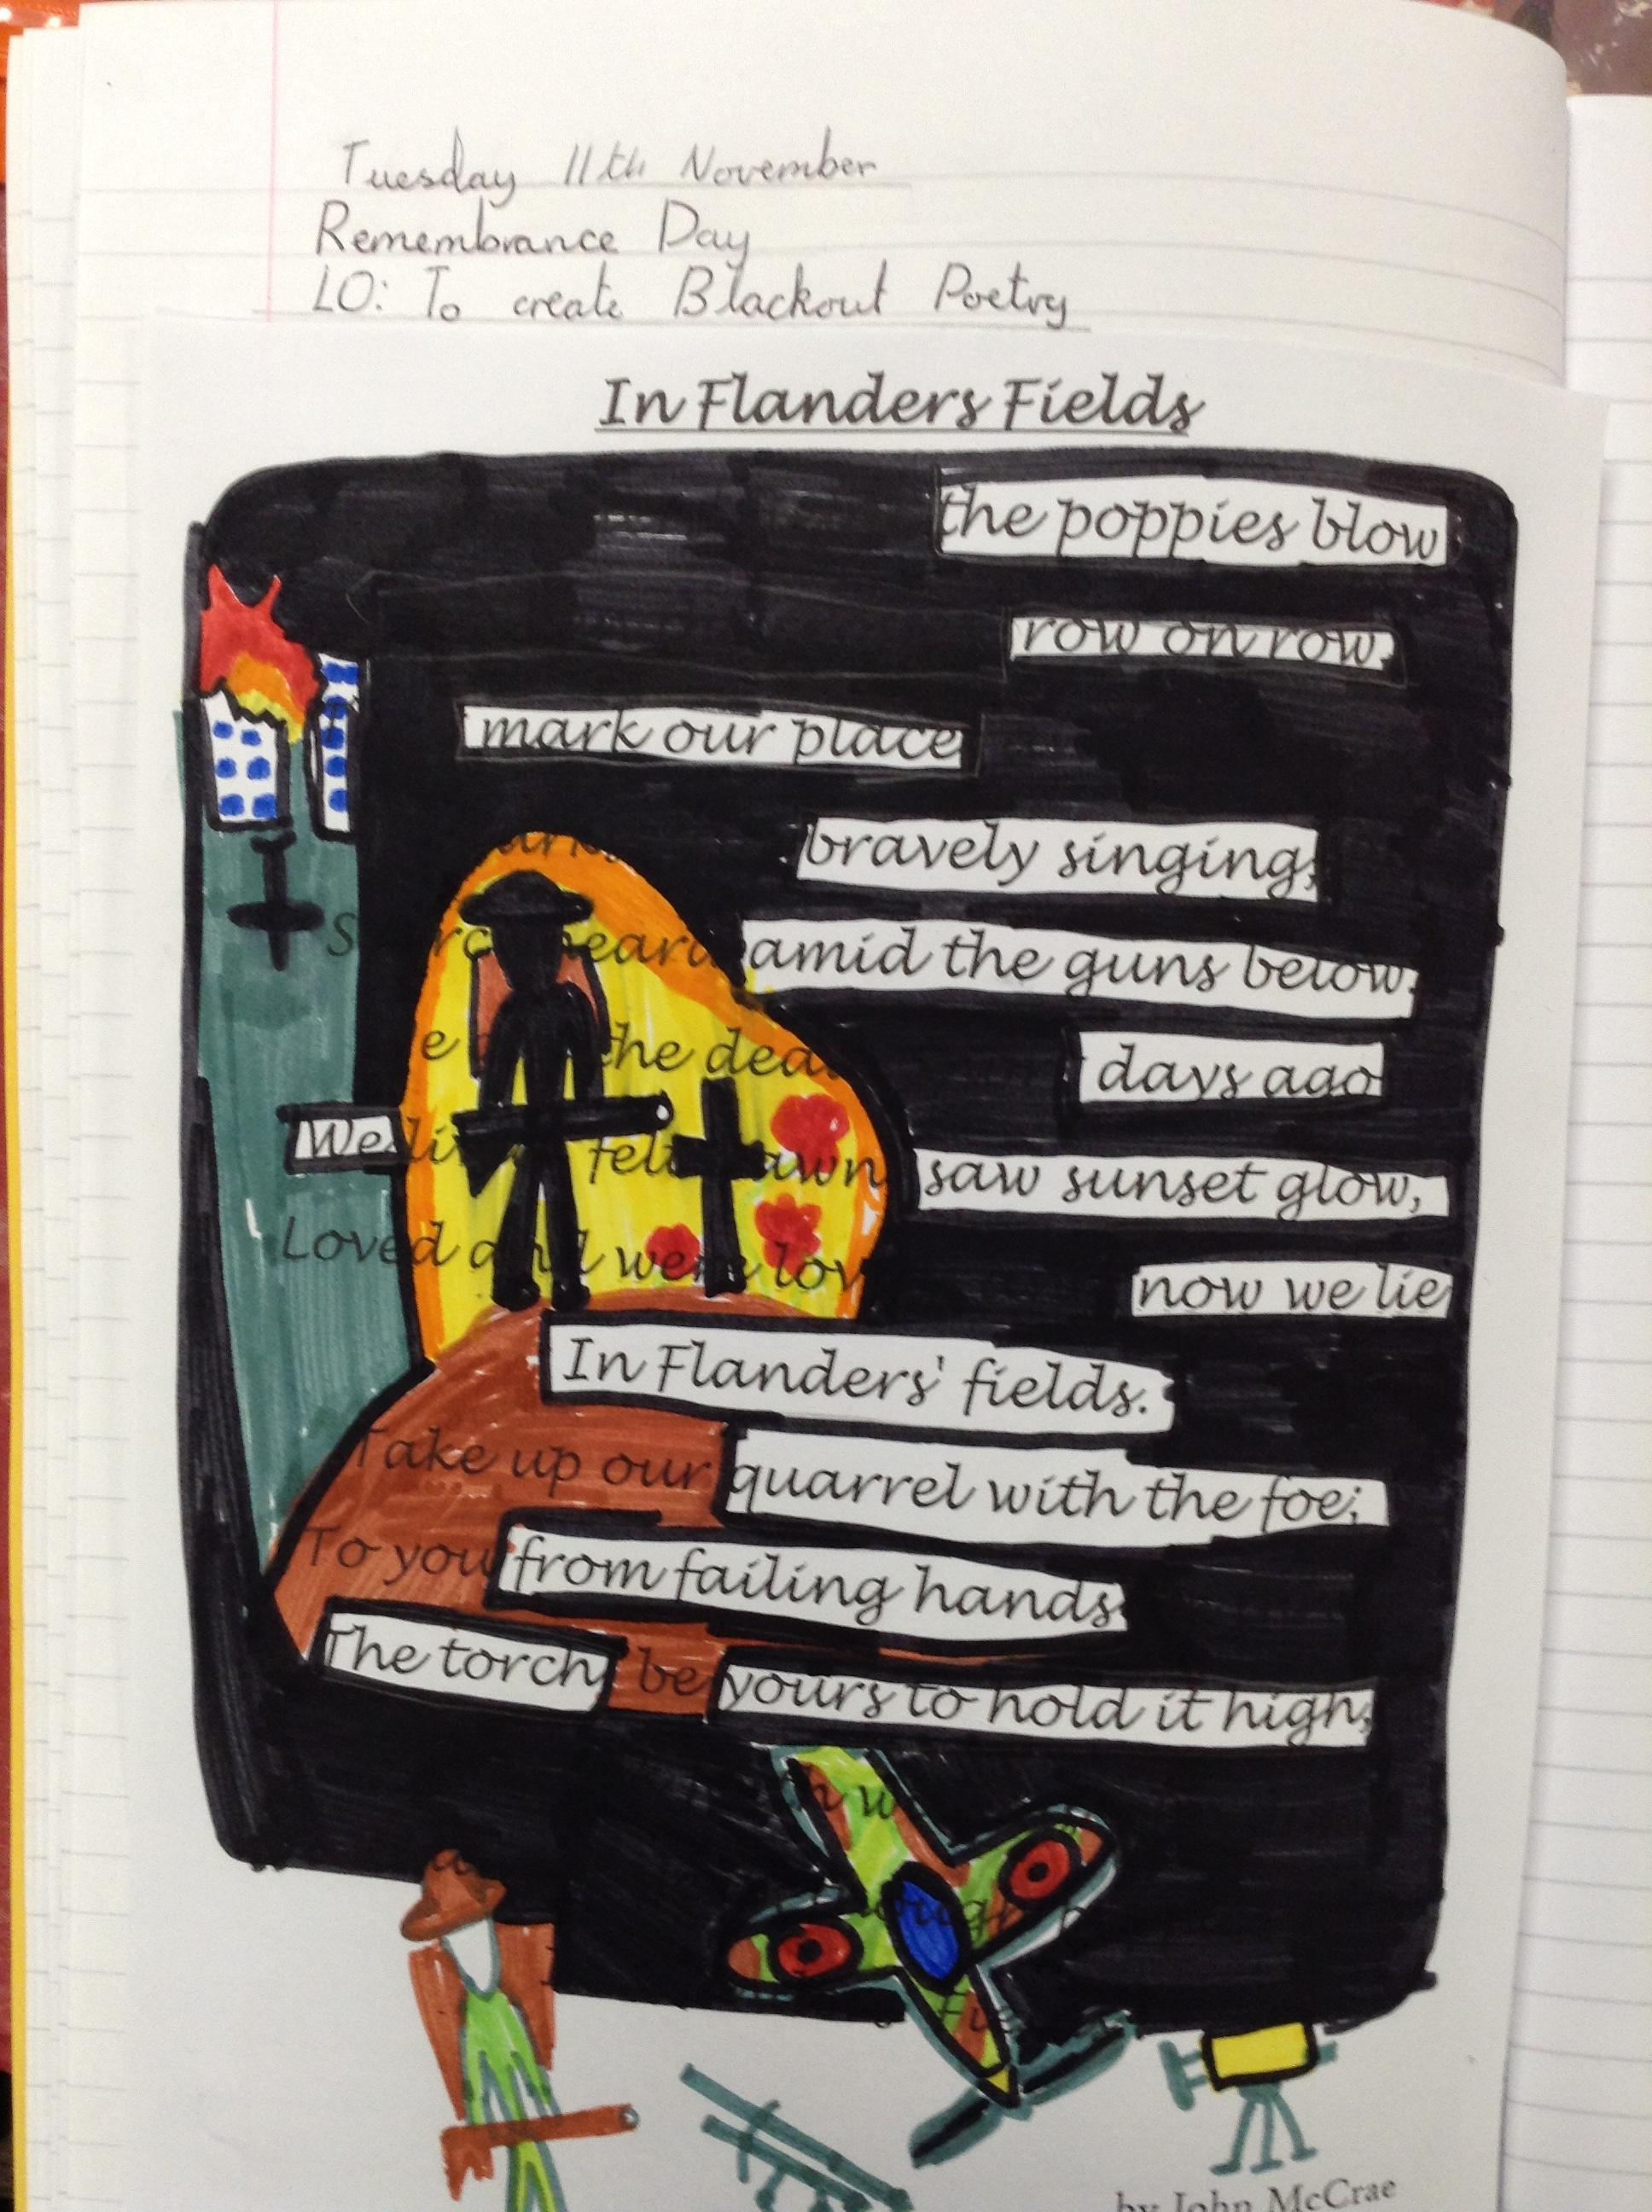 Tuesday 11th November
Remembrance Day
LO: To create Blackout Poetry
In Flanders Fields
the poppies blow
row on row,
mark our place
bravely singing,
heard amid the guns below.
the dead days ago
We felt saw sunset glow,
Loved and were now we lie
In Flanders' fields.
Take up our quarrel with the foe;
To you from failing hands
The torch, be yours to hold it high,
by John McCrae